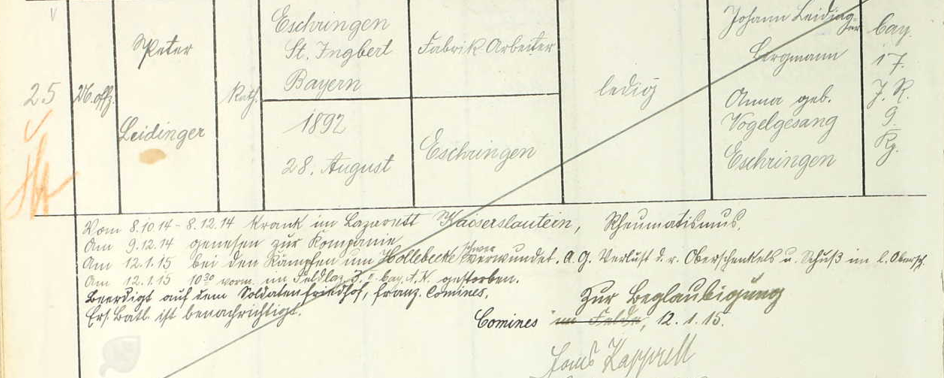 25
U.offz.
Peter
Leidinger
Kath.
Eschringen
St. Ingbert
Bayern
1892
28. August
Fabrik Arbeiter
Eschringen
ledig
Johann Leidinger
Bergmann
Anna geb.
Vogelgesang
Eschringen
bay.
17.
J. R.
9.
Kp.
Vom 8.10.14 - 8.12.14 krank im Lazarett Kaiserslautein, Rheumatismus.
Am 9.12.14 genesen zur Kompanie
Am 12.1.15 bei den Kämpfen um Hollebecke schwer verwundet. A.G. Verlust d. r. Oberschenkels u. Schuß im l. Obersch.
Am 12.1.15 10³⁰ vorm. im Feldlaz. bay. A.K. gestorben.
Beerdigt auf dem Soldatenfriedhof, franz. Comines.
Ers. Batl. ist benachrichtigt.
Zur Beglaubigung
Comines im Felde, 12.1.15.